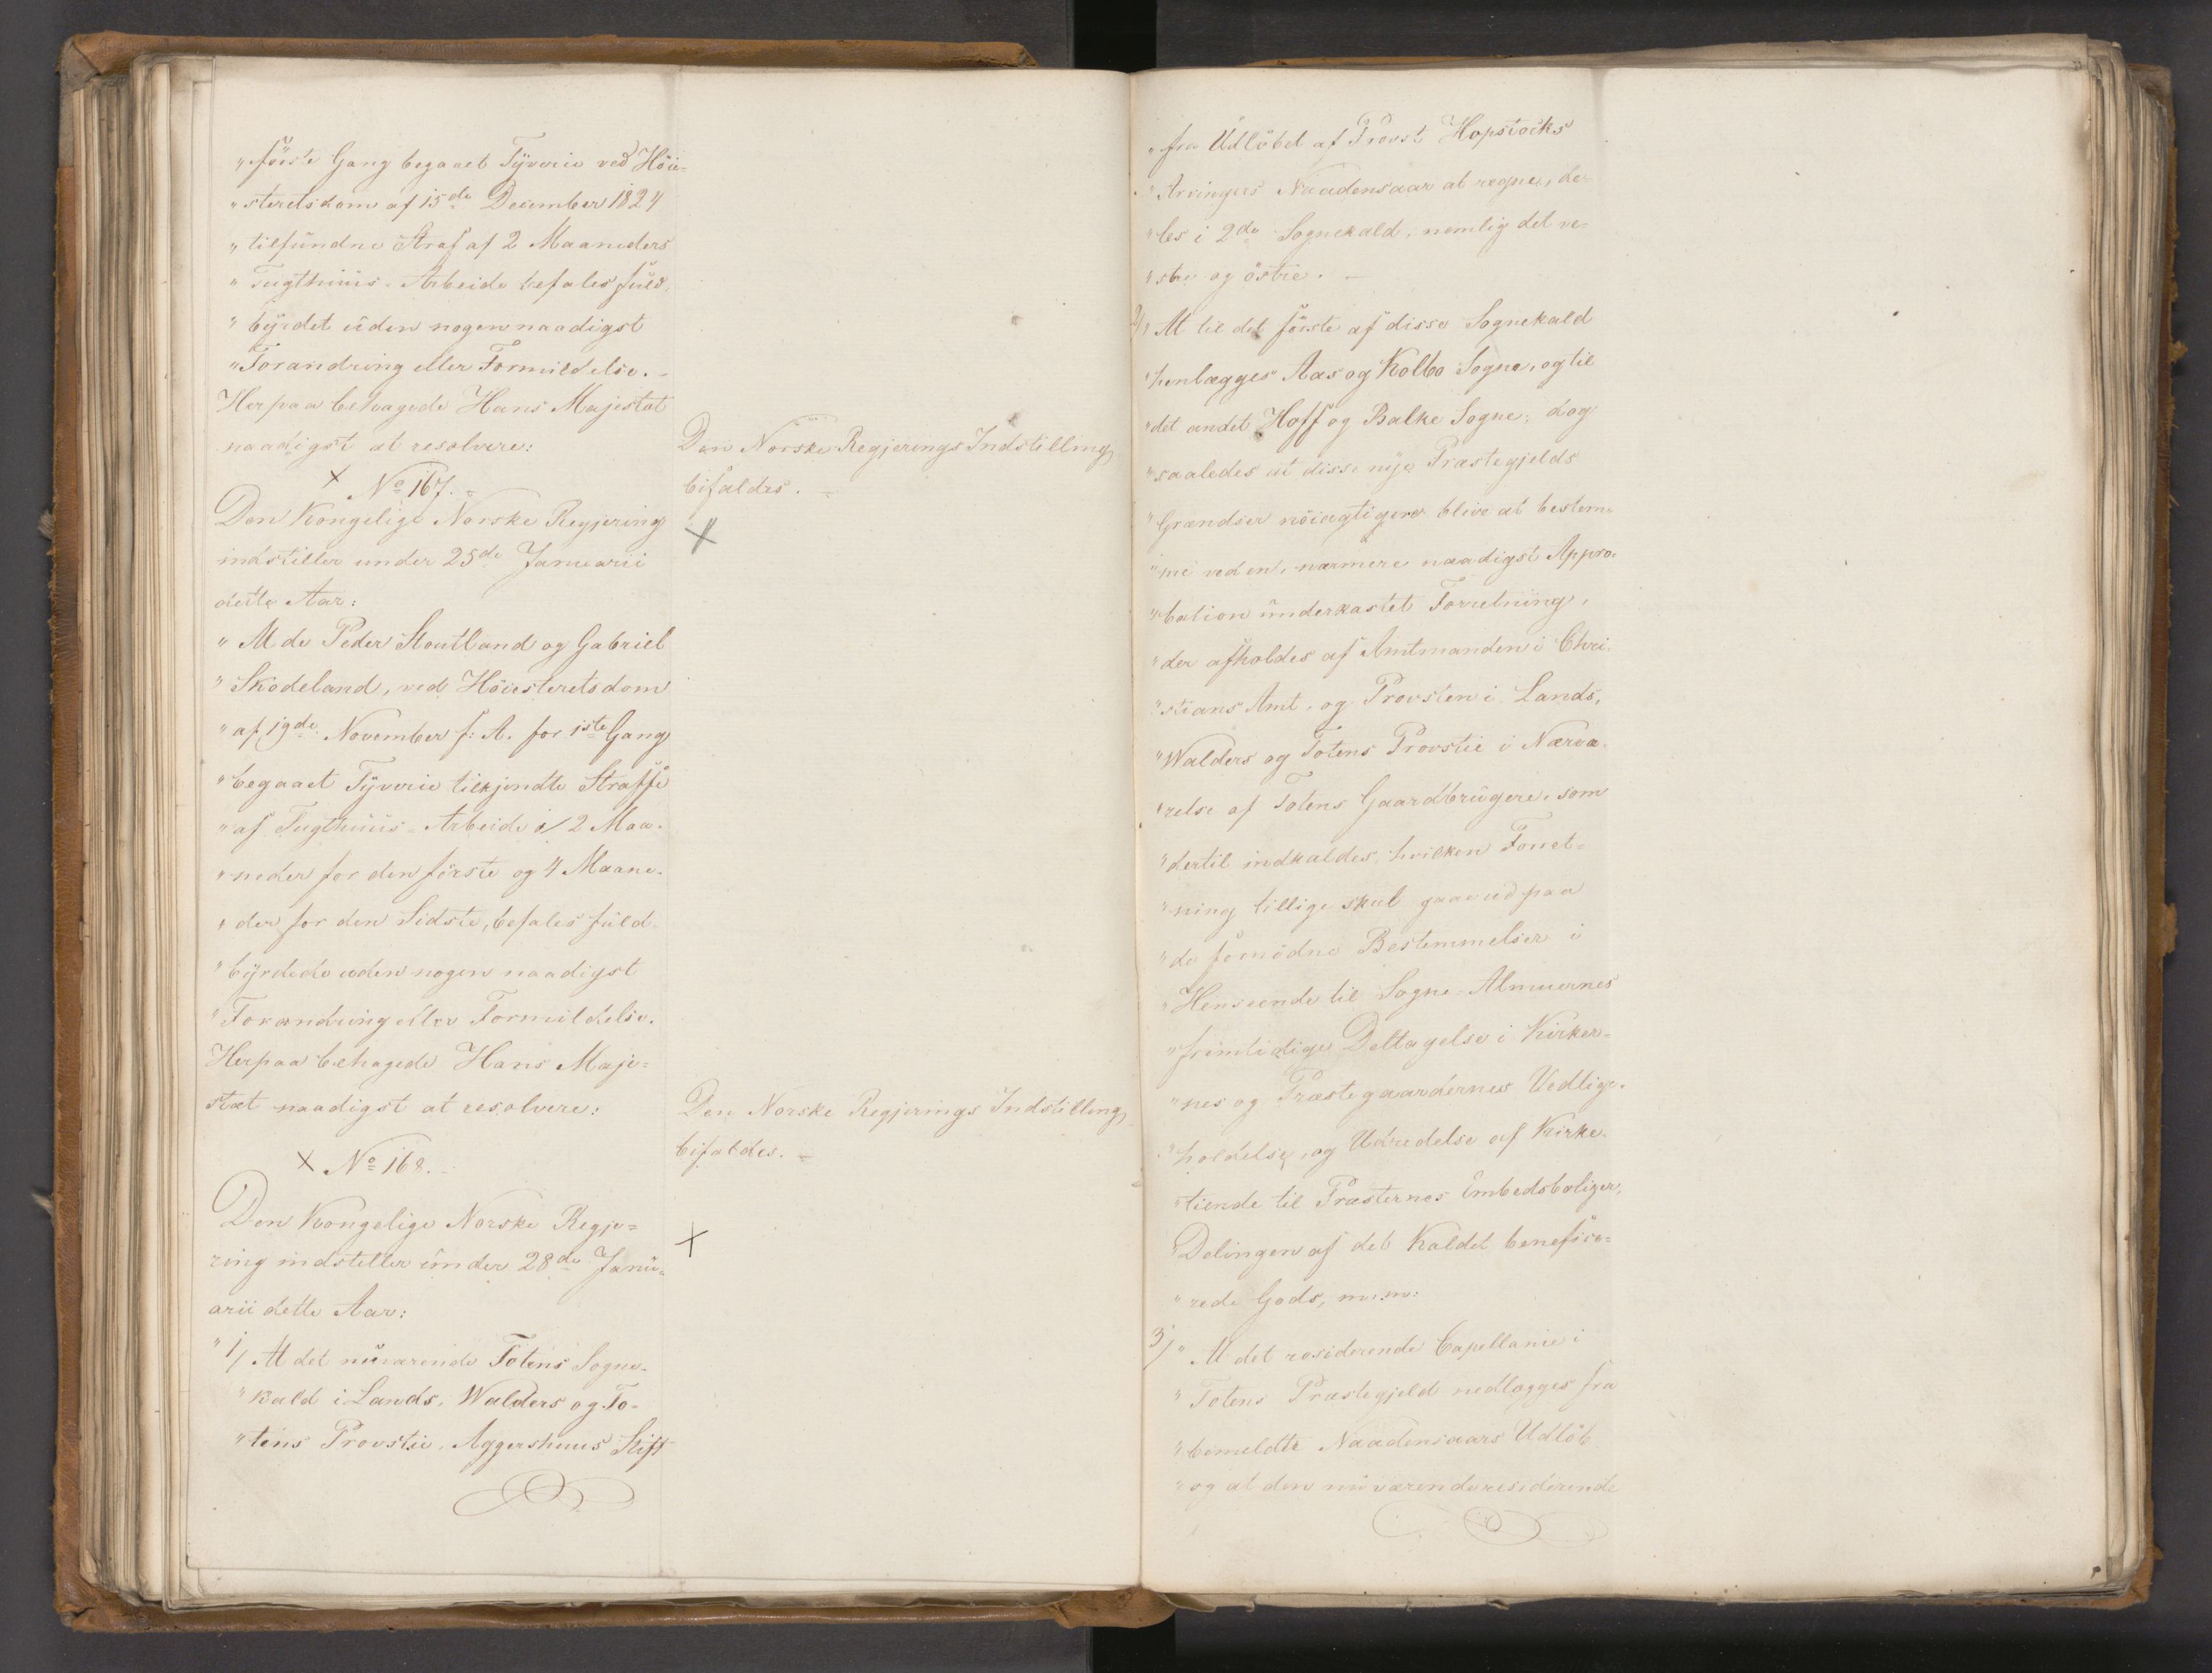 "første Gang begaaet Tÿverie ved Höie-
"steretsdom af 15de December 1824
"tilfundne Straf af 2 Maaneders
"Tugthuus-Arbeide befales fuld-
"bÿrdet uden nogen naadigst
"Forandring eller Formildelse. -
Herpaa behagede Hans Majestæt
naadigst at resolvere:
Den Norske Regjerings Indstilling
bifaldes. -
X No 167. -
Den Kongelige Norske Regjering
indstiller under 25de Januarii
dette Aar:
"At de Peder Stoutland og Gabriel
"Skodeland, ved Höiesteretsdom
"af 19de November f: A. for 1ste Gang
"begaaet Tÿverie tilkjendte Straffe
"af Tugthuus-Arbeide i 2 Maa-
"neder for den første og 4 Maane-
"der for den Sidste, befales fuld-
"bÿrdede uden nogen naadigst
"Forandring eller Formildelse.
Herpaa behagede Hans Maje-
stæt naadigst at resolvere:
Den Norske Regjerings Indstilling
bifaldes. -
X No 168. -
Den Kongelige Norske Regje-
ring indstiller under 28de Janu-
arii dette Aar:
"1/ At det nuværende Totens Sogne-
"kald i Lands, Walders og To-
"tens Provstie, Aggershuus Stift
"fra Udlöbet af Provst Hopstocks
"Arvingers Naadensaar at regne, de-
"les i 2de Sognekald, nemlig det ve-
"stre og östre. -
2/ "At til det første af disse Sognekald
"henlægges Aas og Kolbo Sogne, og til
"det andet Hoff og Balke Sogne, dog
"saaledes at disse nÿe Præstegjelds
"Grændser nöiagtigere blive at bestem-
"me ved en, nærmere naadigst Appro-
"bation underkastet Forretning,
"der afholdes af Amtmanden i Chri-
"stians Amt, og Provsten i Lands,
"Walders og Totens Provstie i Nærvæ-
"relse af Totens Gaardbrugere, som
"dertil indkaldes, hvilken Forret-
"ning tillige skal gaae ud paa
"de fornödne Bestemmelser i
"Henseende til Sogne-Almuernes
"fremtidige Deltagelse i Kirker-
"nes og Præstegaardernes Vedlige-
"holdelse, og Udredelse af Kirke-
"tiende til Præsternes Embedsboliger,
"Delingen af det Kaldet benefice-
"rede Gods, m: m:
3/ "At det residerende Capellanie i
"Totens Præstegjeld nedlægges fra
"bemeldte Naadensaars Udlöb
"og at den nuværende residerende